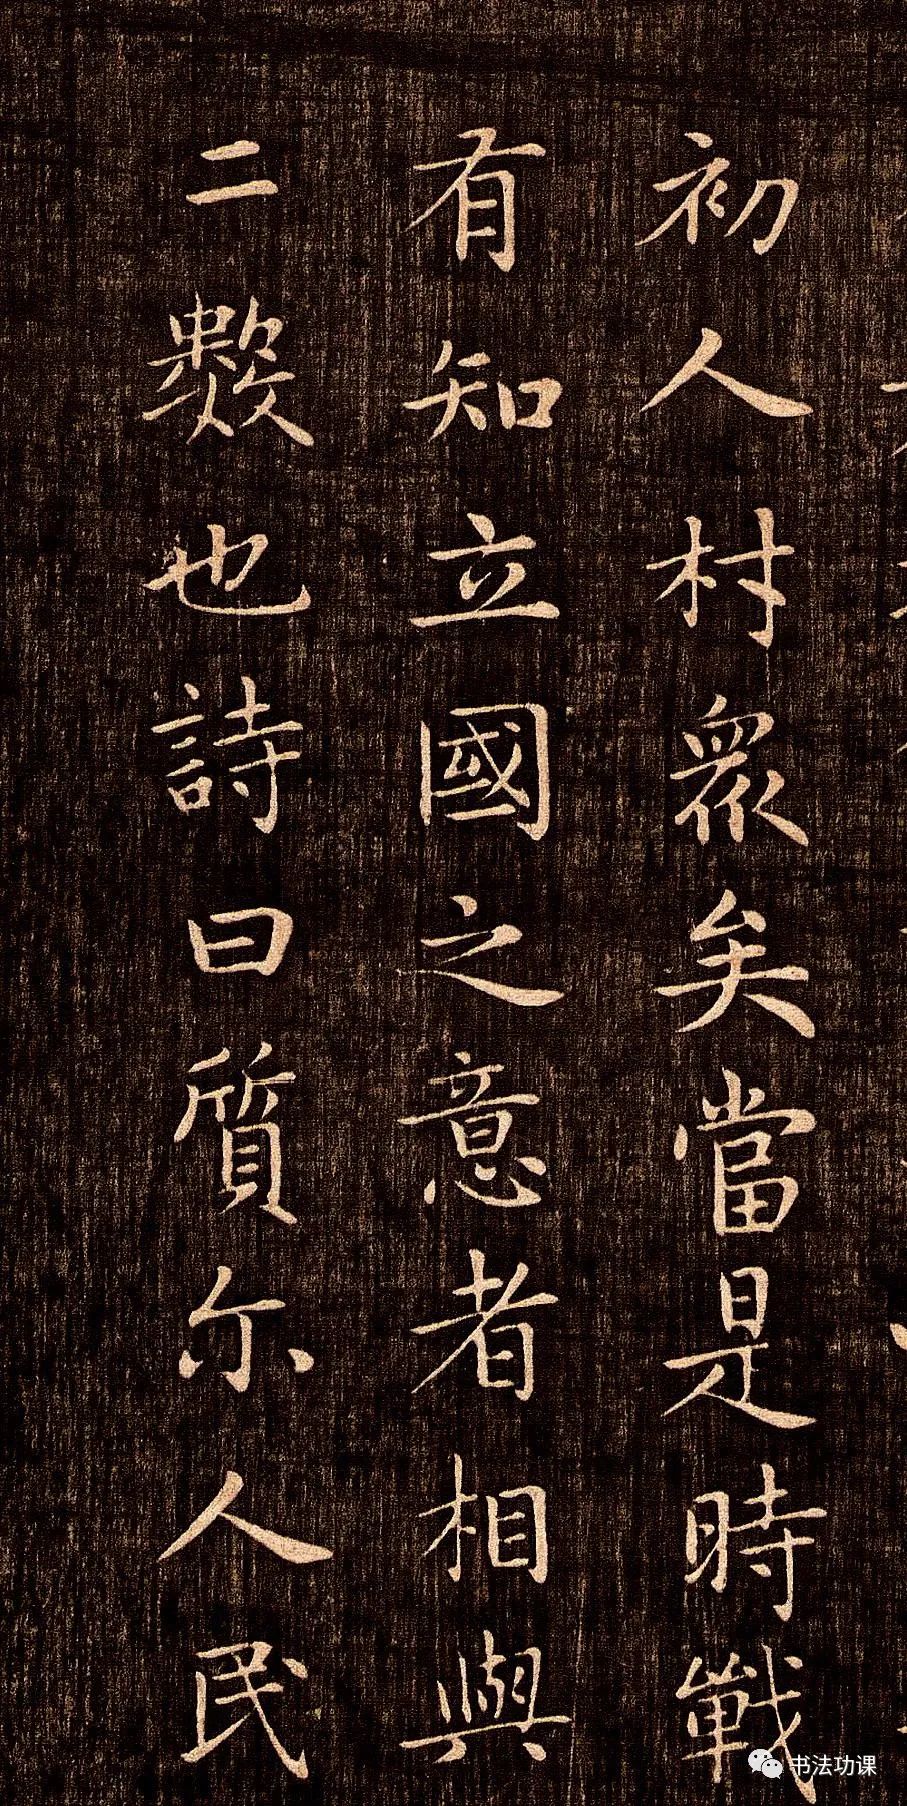 初人村衆矣當是時戰
有知立國之意者相與
二數也詩曰質尔人民
书法功课